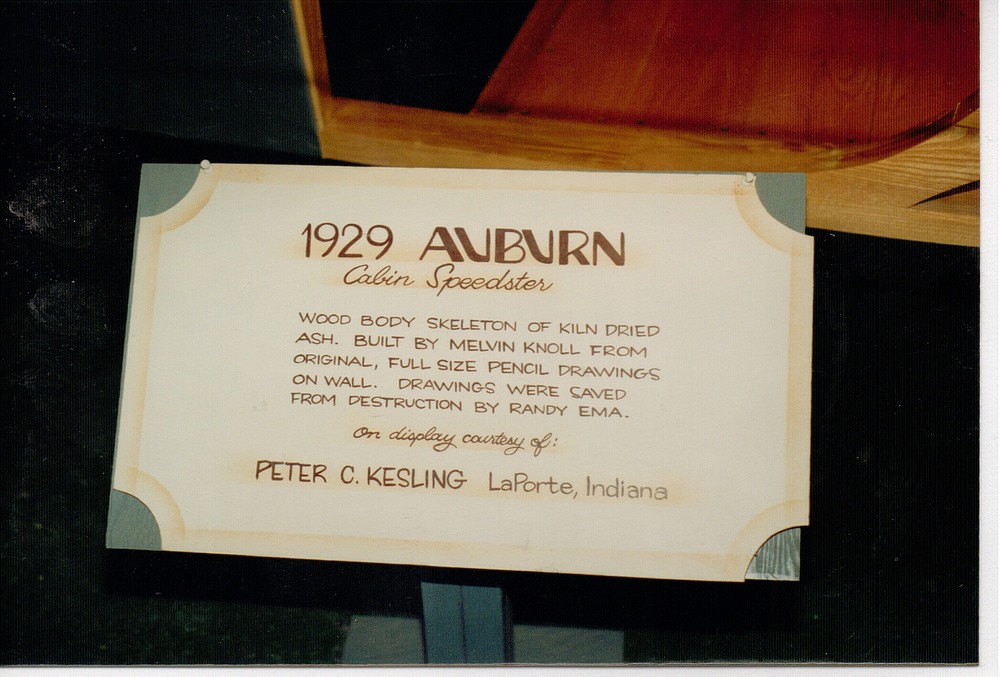 1929 AUBURN
Cabin Speedster
WOOD BODY SKELETON OF KILN DRIED
ASH. BUILT BY MELVIN KNOLL FROM
ORIGINAL, FULL SIZE PENCIL DRAWINGS
ON WALL. DRAWINGS WERE SAVED
FROM DESTRUCTION BY RANDY EMA.
On display courtesy of:
PETER C. KESLING LaPorte, Indiana